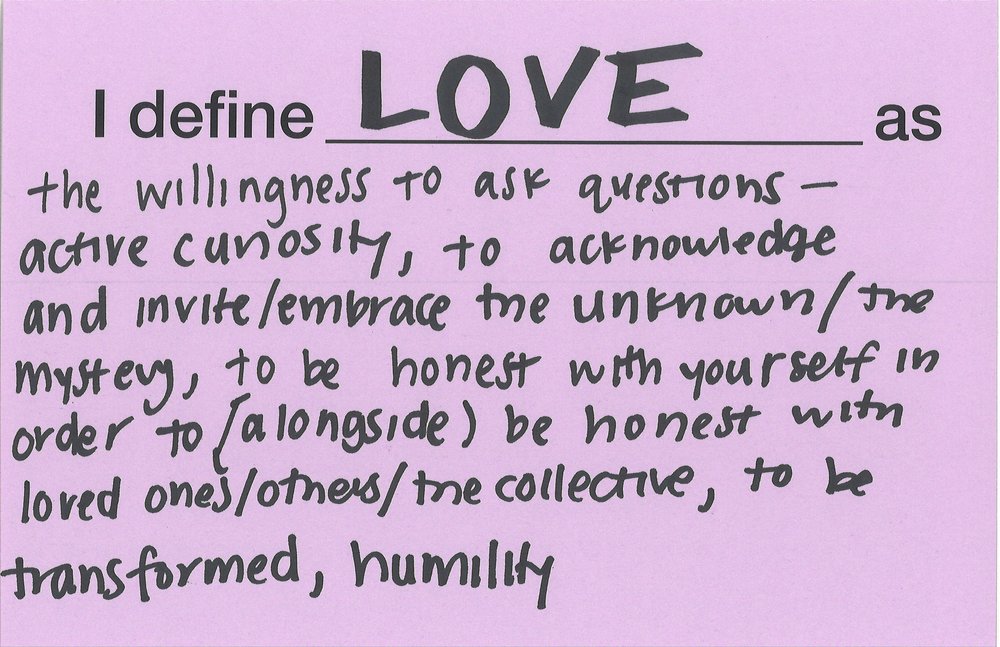 I define LOVE as
the willingness to ask questions –
active curiosity, to acknowledge
and invite/embrace the unknown/the
mystery, to be honest with yourself in
order to (alongside) be honest with
loved ones/others/the collective, to be
transformed, humility